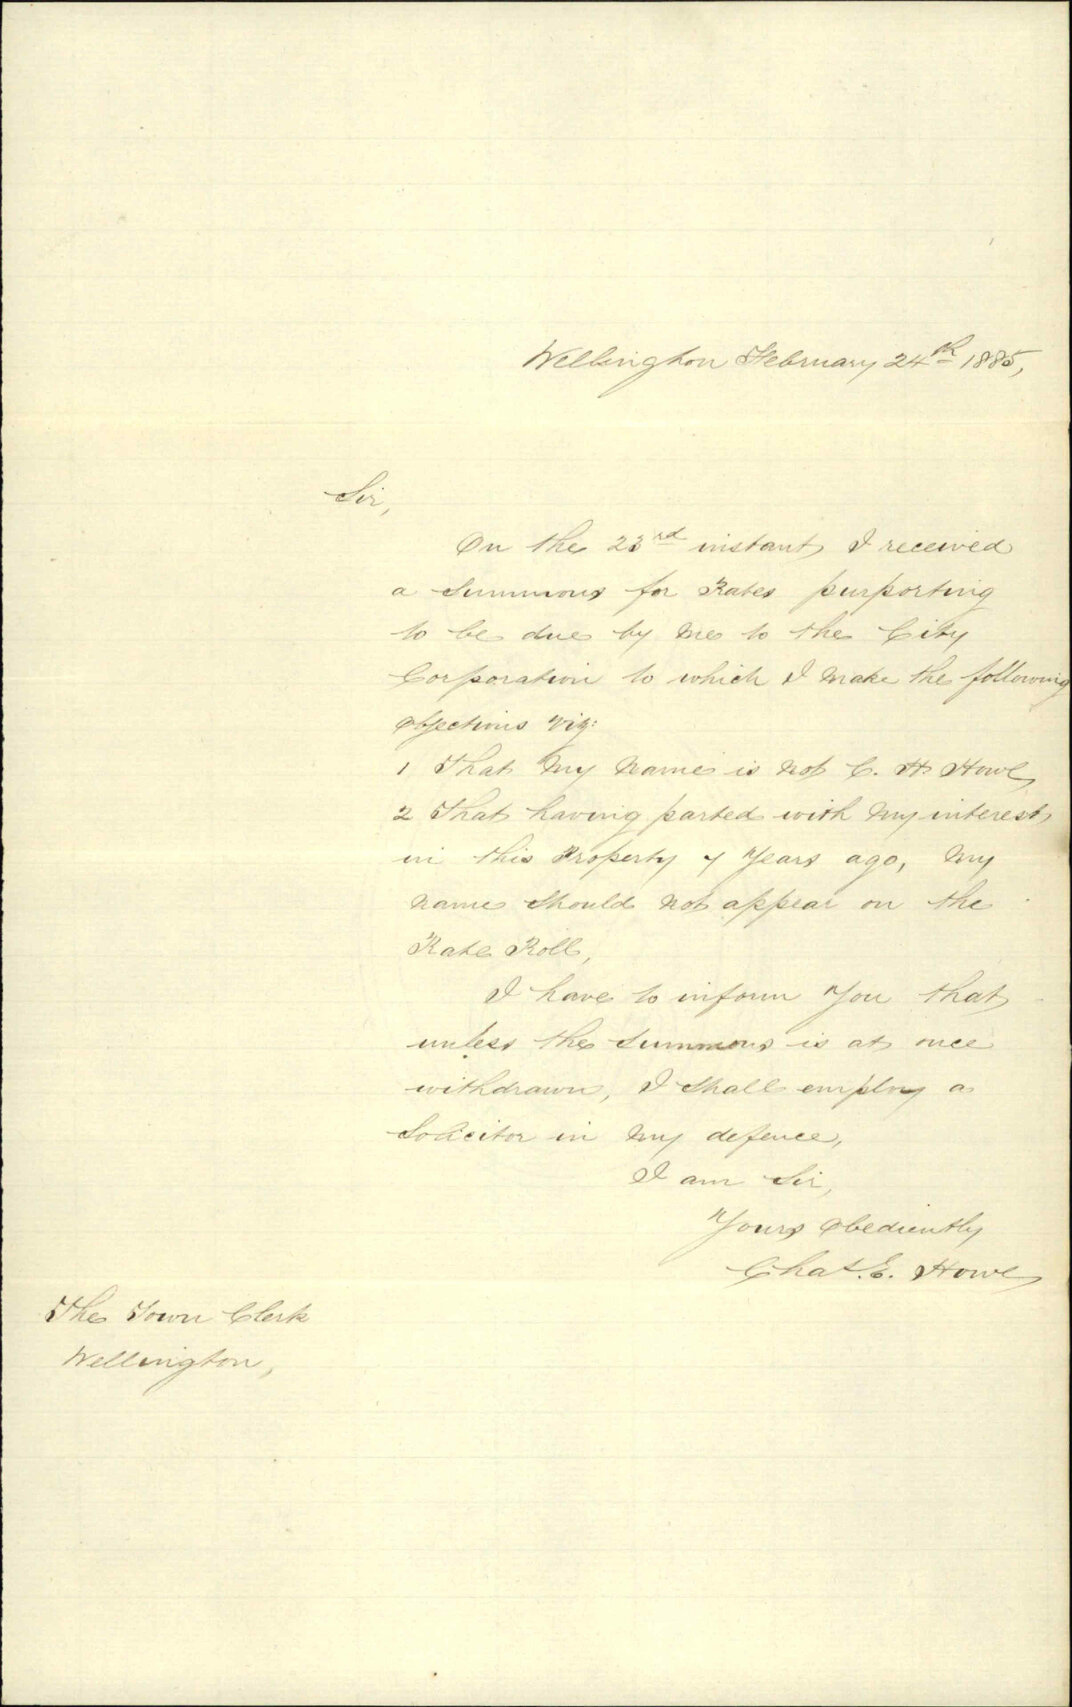 Wellington February 24th 1885,
Sir,
On the 23rd instant I received
a Summons for Rates purporting
to be due by me to the City
Corporation to which I make the following
objections viz:
1 That my name is not C. H Howe
2 That having parted with my interest
in this Property 7 years ago, my
name should not appear on the
Rate Roll,
I have to inform you that
unless the Summons is at once
withdrawn, I shall employ a
Solicitor in my defence,
I am Sir,
Yours obediently
Chas. E. Howe
The Town Clerk
Wellington,